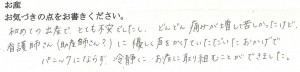 お産
お気づきの点をお書きください。
初めての出産で、とても不安でしたし、どんどん痛みが増して苦しかったけど、
看護師さん(助産師さん?)に優しく声をかけていただいたおかげで
パニックにならず冷静にお産に取り組むことができました。